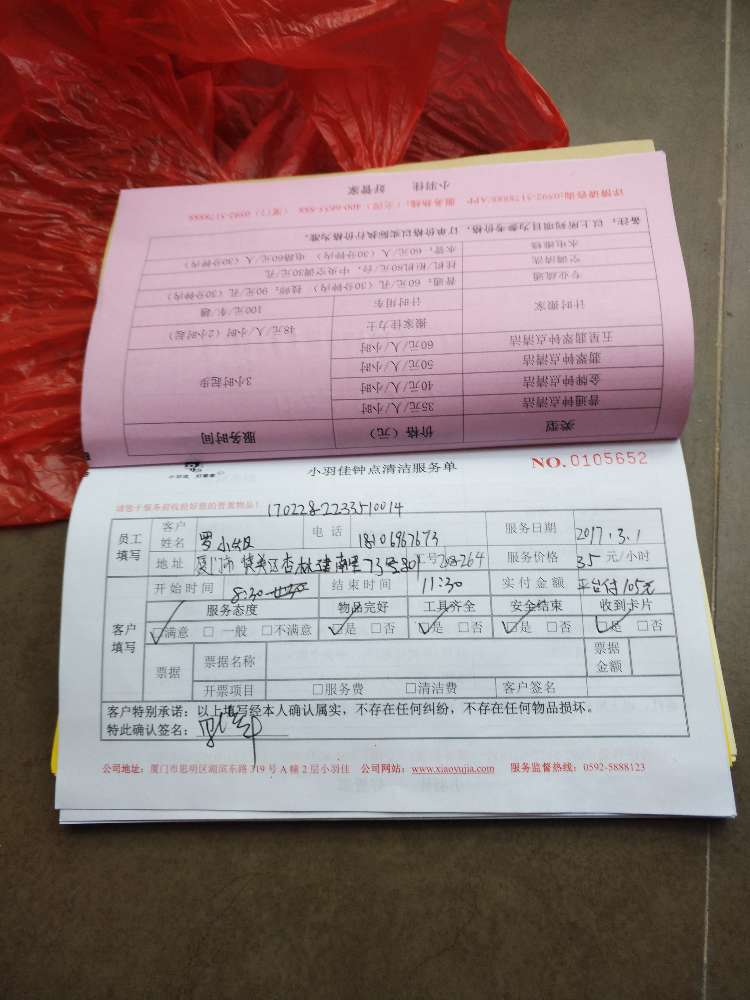 详情请咨询:0592-5178888/APP 服务热线:(全国) 400-6655-888 (厦门) 0592-5178888
小羽佳 好管家
备注:以上所列项目为参考价格,订单价格以实际执行价格为准。
类型 价格(元) 服务时间
普通钟点清洁 35元/人/小时 3小时起步
金牌钟点清洁 40元/人/小时
翡翠钟点清洁 50元/人/小时
五星翡翠钟点清洁 60元/人/小时
计时搬家 搬家佳力士 48元/人/小时(2小时起)
计时用车 100元/车/趟
专业疏通 普通:60元/孔(30分钟内) 技师:90元/孔(30分钟内)
空调清洗 挂机/柜机80元/台,中央空调30元/孔
水电维修 水管:60元/人(30分钟内) 电路60元/人(30分钟内)
小羽佳钟点清洁服务单 NO.0105652
请您于服务前收拾好您的贵重物品! 170228-2233510014
员工填写 客户姓名 罗小姐 电话 18106967673 服务日期 2017.3.1
地址 厦门市集美区杏林建南里73号801 工号208264 服务价格 35元/小时
客户填写 开始时间 8:30 结束时间 11:30 实付金额 平台付105元
服务态度 物品完好 工具齐全 安全结束 收到卡片
☑满意 □一般 □不满意 ☑是 □否 ☑是 □否 ☑是 □否 ☑是 □否
票据 票据名称 票据金额
开票项目 □服务费 □清洁费 客户签名
客户特别承诺:以上填写经本人确认属实,不存在任何纠纷,不存在任何物品损坏。
特此确认签名:
公司地址:厦门市思明区湖滨东路319号A幢2层小羽佳 公司网站:www.xiaoyujia.com 服务监督热线:0592-5888123